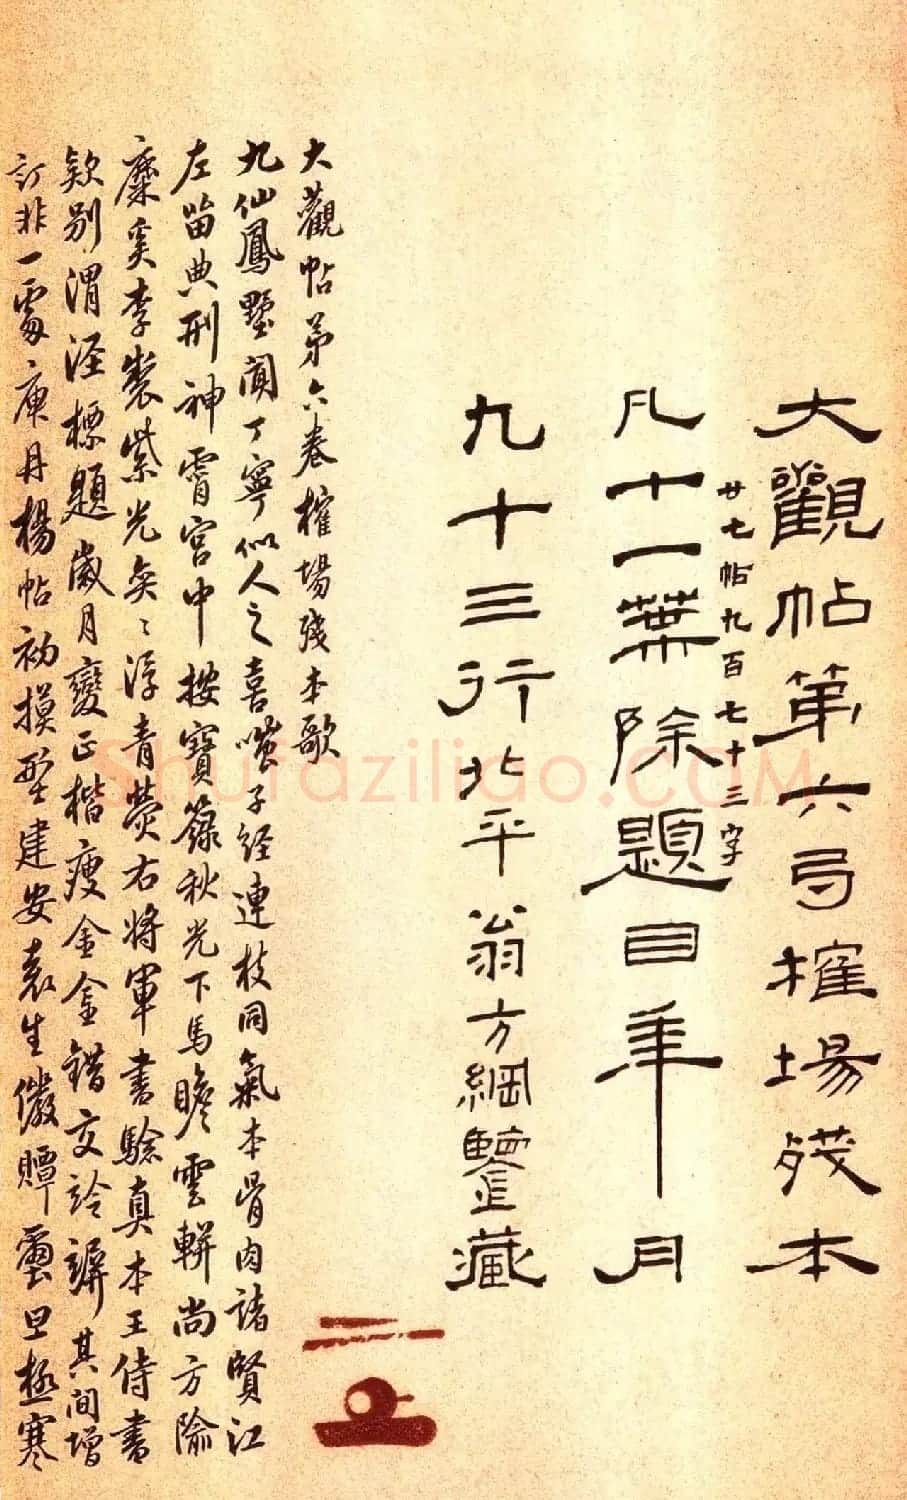 大觀帖第六弓㩁場殘本
廿七帖九百七十三字
凡十一葉除題目年月
九十三行北平翁方綱鑒藏
大觀帖第六卷榷場殘本歌
九仙鳳墅闻丁寧似人之喜嗤子經連枝同氣本骨肉諸賢江
左留典刑神霄宮中按寶籙秋光下馬瞻雲軿尚方隃
麋奚李製紫光奕〻浮青熒右將軍書騐真本王侍書
欵别渭涇標題歲月變正楷瘦金金錯交訡謘其间增
訂非一處庚丹楊帖初摸型建安袁生儆贉璽旦極寒
Shufaziliao.COM